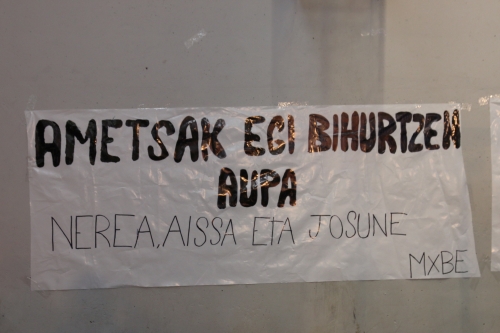 AMETSAK EGI BIHURTZEN
AUPA
NEREA, AISSA ETA JOSUNE
MXBE